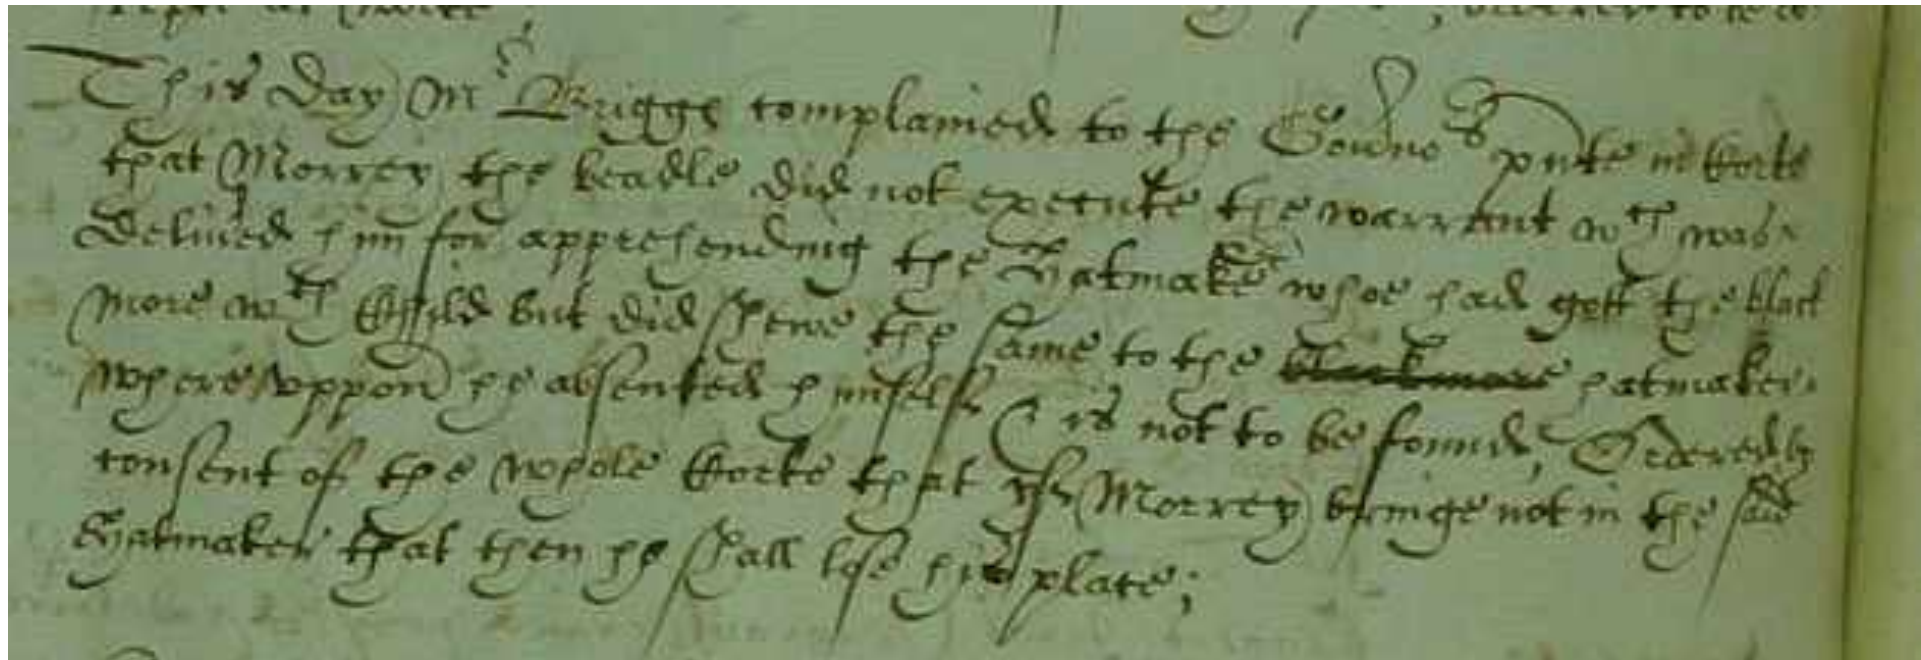 This day Mr Briggs complained to the Gou'no's p'nte in Corte
that Morrey the beadle did not execute the warrant wth was
deliu'ed him for apprehending the Hatmaker whoe had gott the black
more wth Child but did shewe the same to the blackmore hatmaker
where vppon he absented himself & is not to be found, Ordered by
consent of the whole Corte that yf Morrey bringe not in the said
Hatmaker that then he shall lose his place;